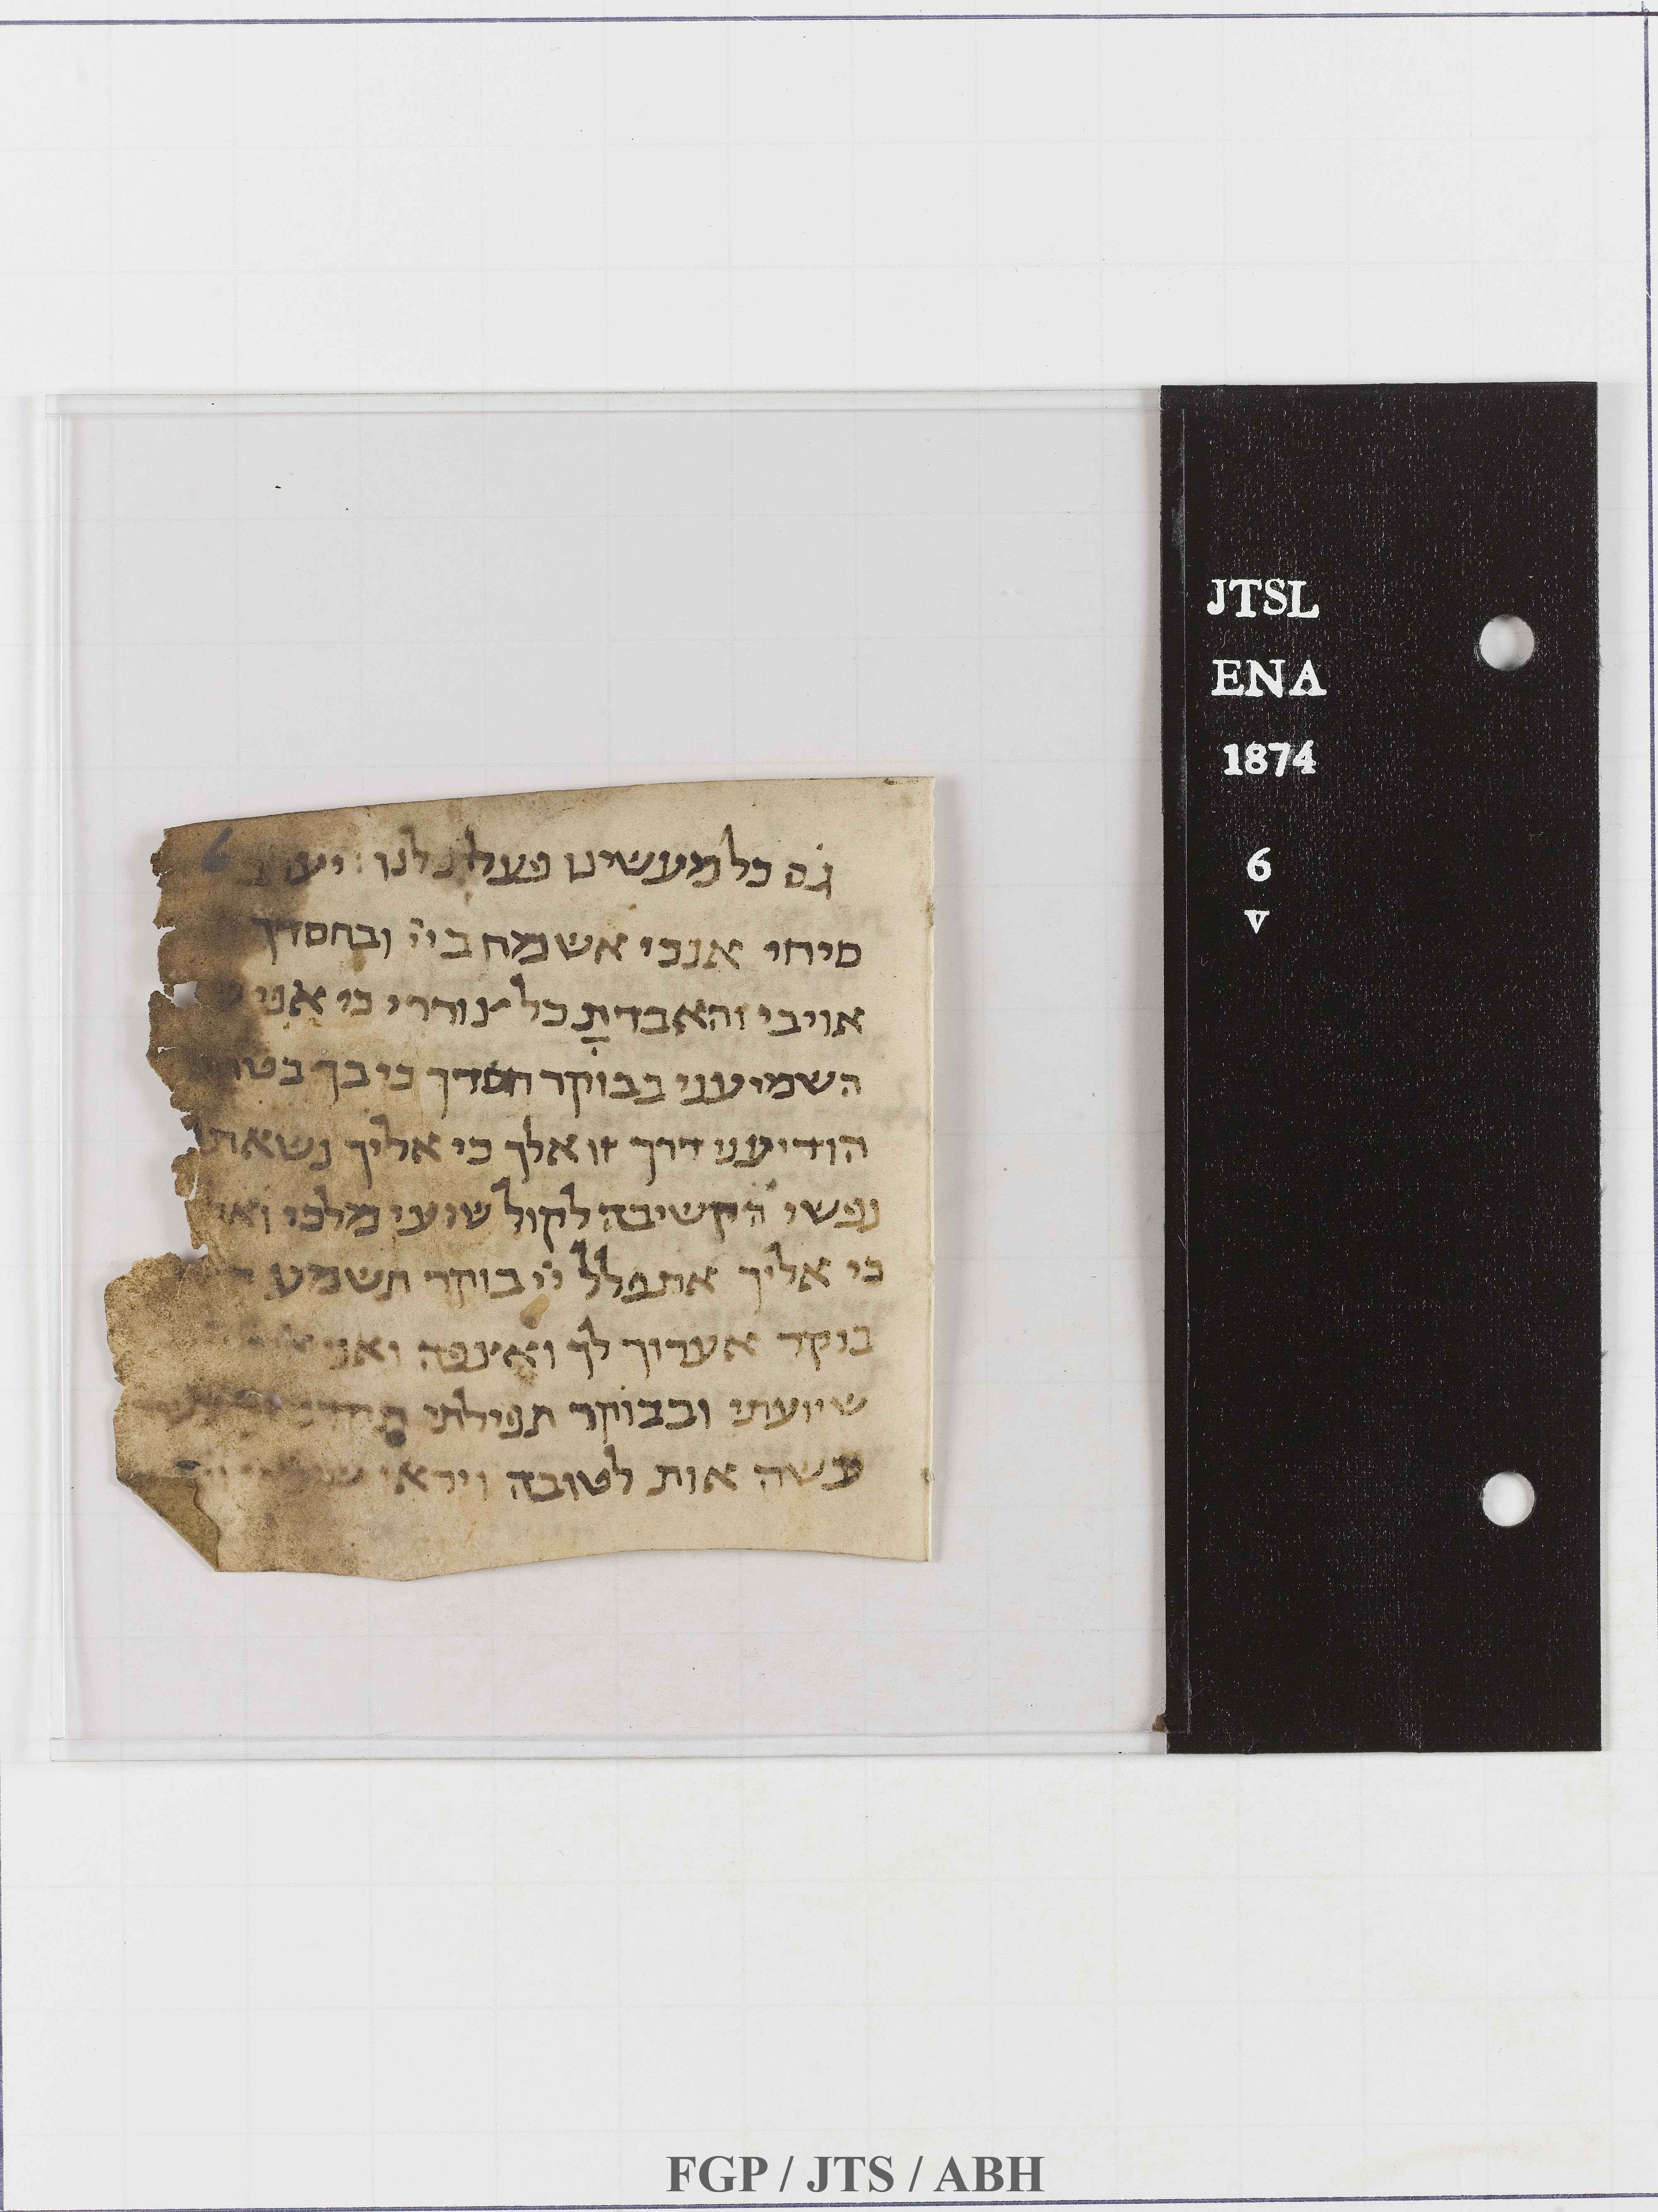 גם כל מעשינו פעלת לנו : יער
סיחי אנכי אשמח בי'י ובחסדך
אויבי והאבדת כל צוררי כי אני
השמיעני בבוקר חסדך כי בך בטח
הודיעני דרך זו אלך כי אליך נשאתי
נפשי הקשיבה לקול שועי מלכי ואל
כי אליך אתפלל י'י בוקר תשמע
בוקר אערוך לך ואצפה ואני
שיועתי ובבוקר תפילתי תקדמ
עשה אות לטובה ויראו
6
JTSL
ENA
1874
6
v
FGP / JTS / ABH